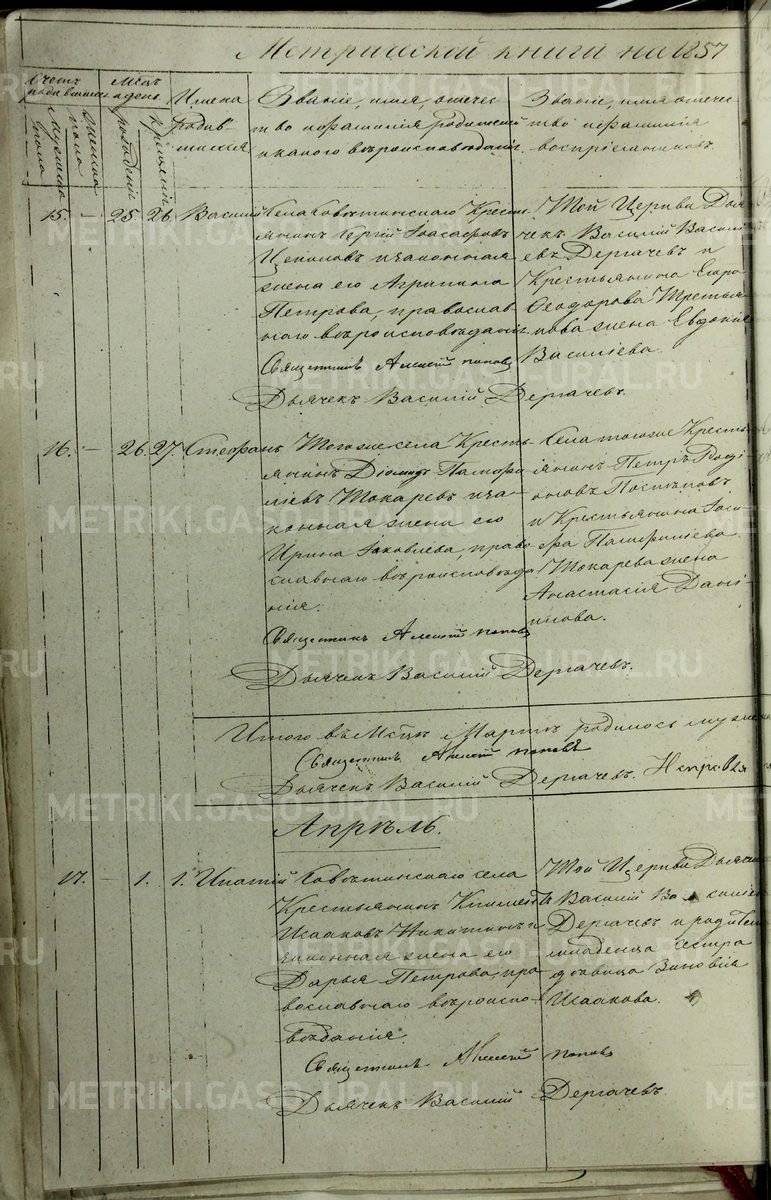 Метрической книги на 1857
Счетъ родившихся
Мужеска пола
Женска пола
Мѣсяцъ и день
рожденія
крещенія
Имена родив-
шихся
Званіе, имя, отечес
тво и фамилія родителей
и какого вѣроисповѣданія.
Званіе, имя отечес
тво и фамилія
воспріемниковъ.
15. — 25. 26. Василій
Села Совѣтинскаго Кресть
янинъ Сергій Іоасафовъ
и законная
жена его Агрипина
Петрова, православ
наго вѣроисповѣданія.
Священникъ Алексій Поповъ
Дьячекъ Василій Дергачевъ.
Той Церкви Дья
чекъ Василій Василі
евъ Дергачевъ и
Крестьянина
Ѳеодорова Третья
кова жена Евдокія
Василіева.
16. — 26. 27. Стефанъ
Тогоже села Кресть
янинъ Діомидъ Памфи
ліевъ Токаревъ и за-
конная жена его
Ирина Іаковлева, право
славнаго вѣроисповѣда
нія.
Священникъ Алексій Поповъ
Дьячекъ Василій Дергачевъ.
Села тогоже Кресть
янинъ Петръ Роді
оновъ Поспѣловъ
и Крестьянина Іоси
фа Памфиліева
Токарева жена
Анастасія Дани
илова.
Итого въ Мѣсяцѣ Мартѣ родилось муж
Священникъ Алексій Поповъ
Дьячекъ Василій Дергачевъ.
Апрѣль.
17. — 1. 1. Ипатій
Совѣтинскаго села
Крестьянинъ Климентъ
Исааковъ Никитинъ и
законная жена его
Дарья Петрова, пра
вославнаго вѣроиспо-
вѣданія.
Священникъ Алексій Поповъ
Дьячекъ Василій Дергачевъ.
Той Церкви Дьячекъ
Василій Василіевъ
Дергачевъ и родителя
младенца сестра
дѣвица Зиновія
Исаакова.
METRIKI.GASO-URAL.RU